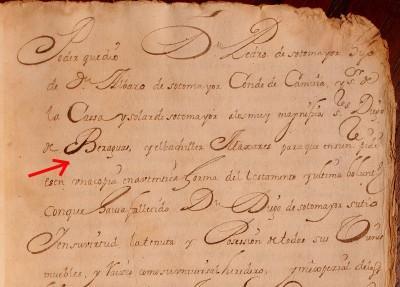 Poder que dio Dn Pedro de sotomayor hijo
de Dn Albaro de sotomayor Conde de Camiña, y sr de
la Cassa y solar de sotomayor a los muy magnificos sres Diego
de Beraguas, y el bachiller Maxares para que en su n
esen una copia en autentica forma del testamento y ultima bolunt
Conque havia fallecido Dn Diego de sotomayor su tio
Y en su virtud la tenuta y Posesion de todos sus Vienes
muebles, y raices como su universal heredero,